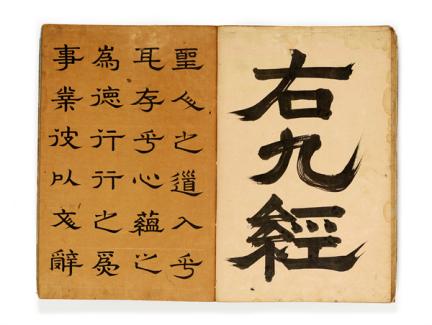 右九經
聖人之道入乎
耳存乎心蘊之
爲德行行之爲
事業彼以文辭